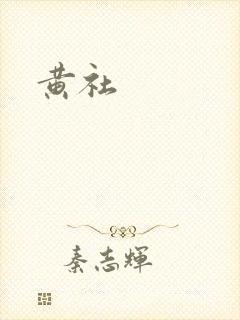 黄社
秦志輝